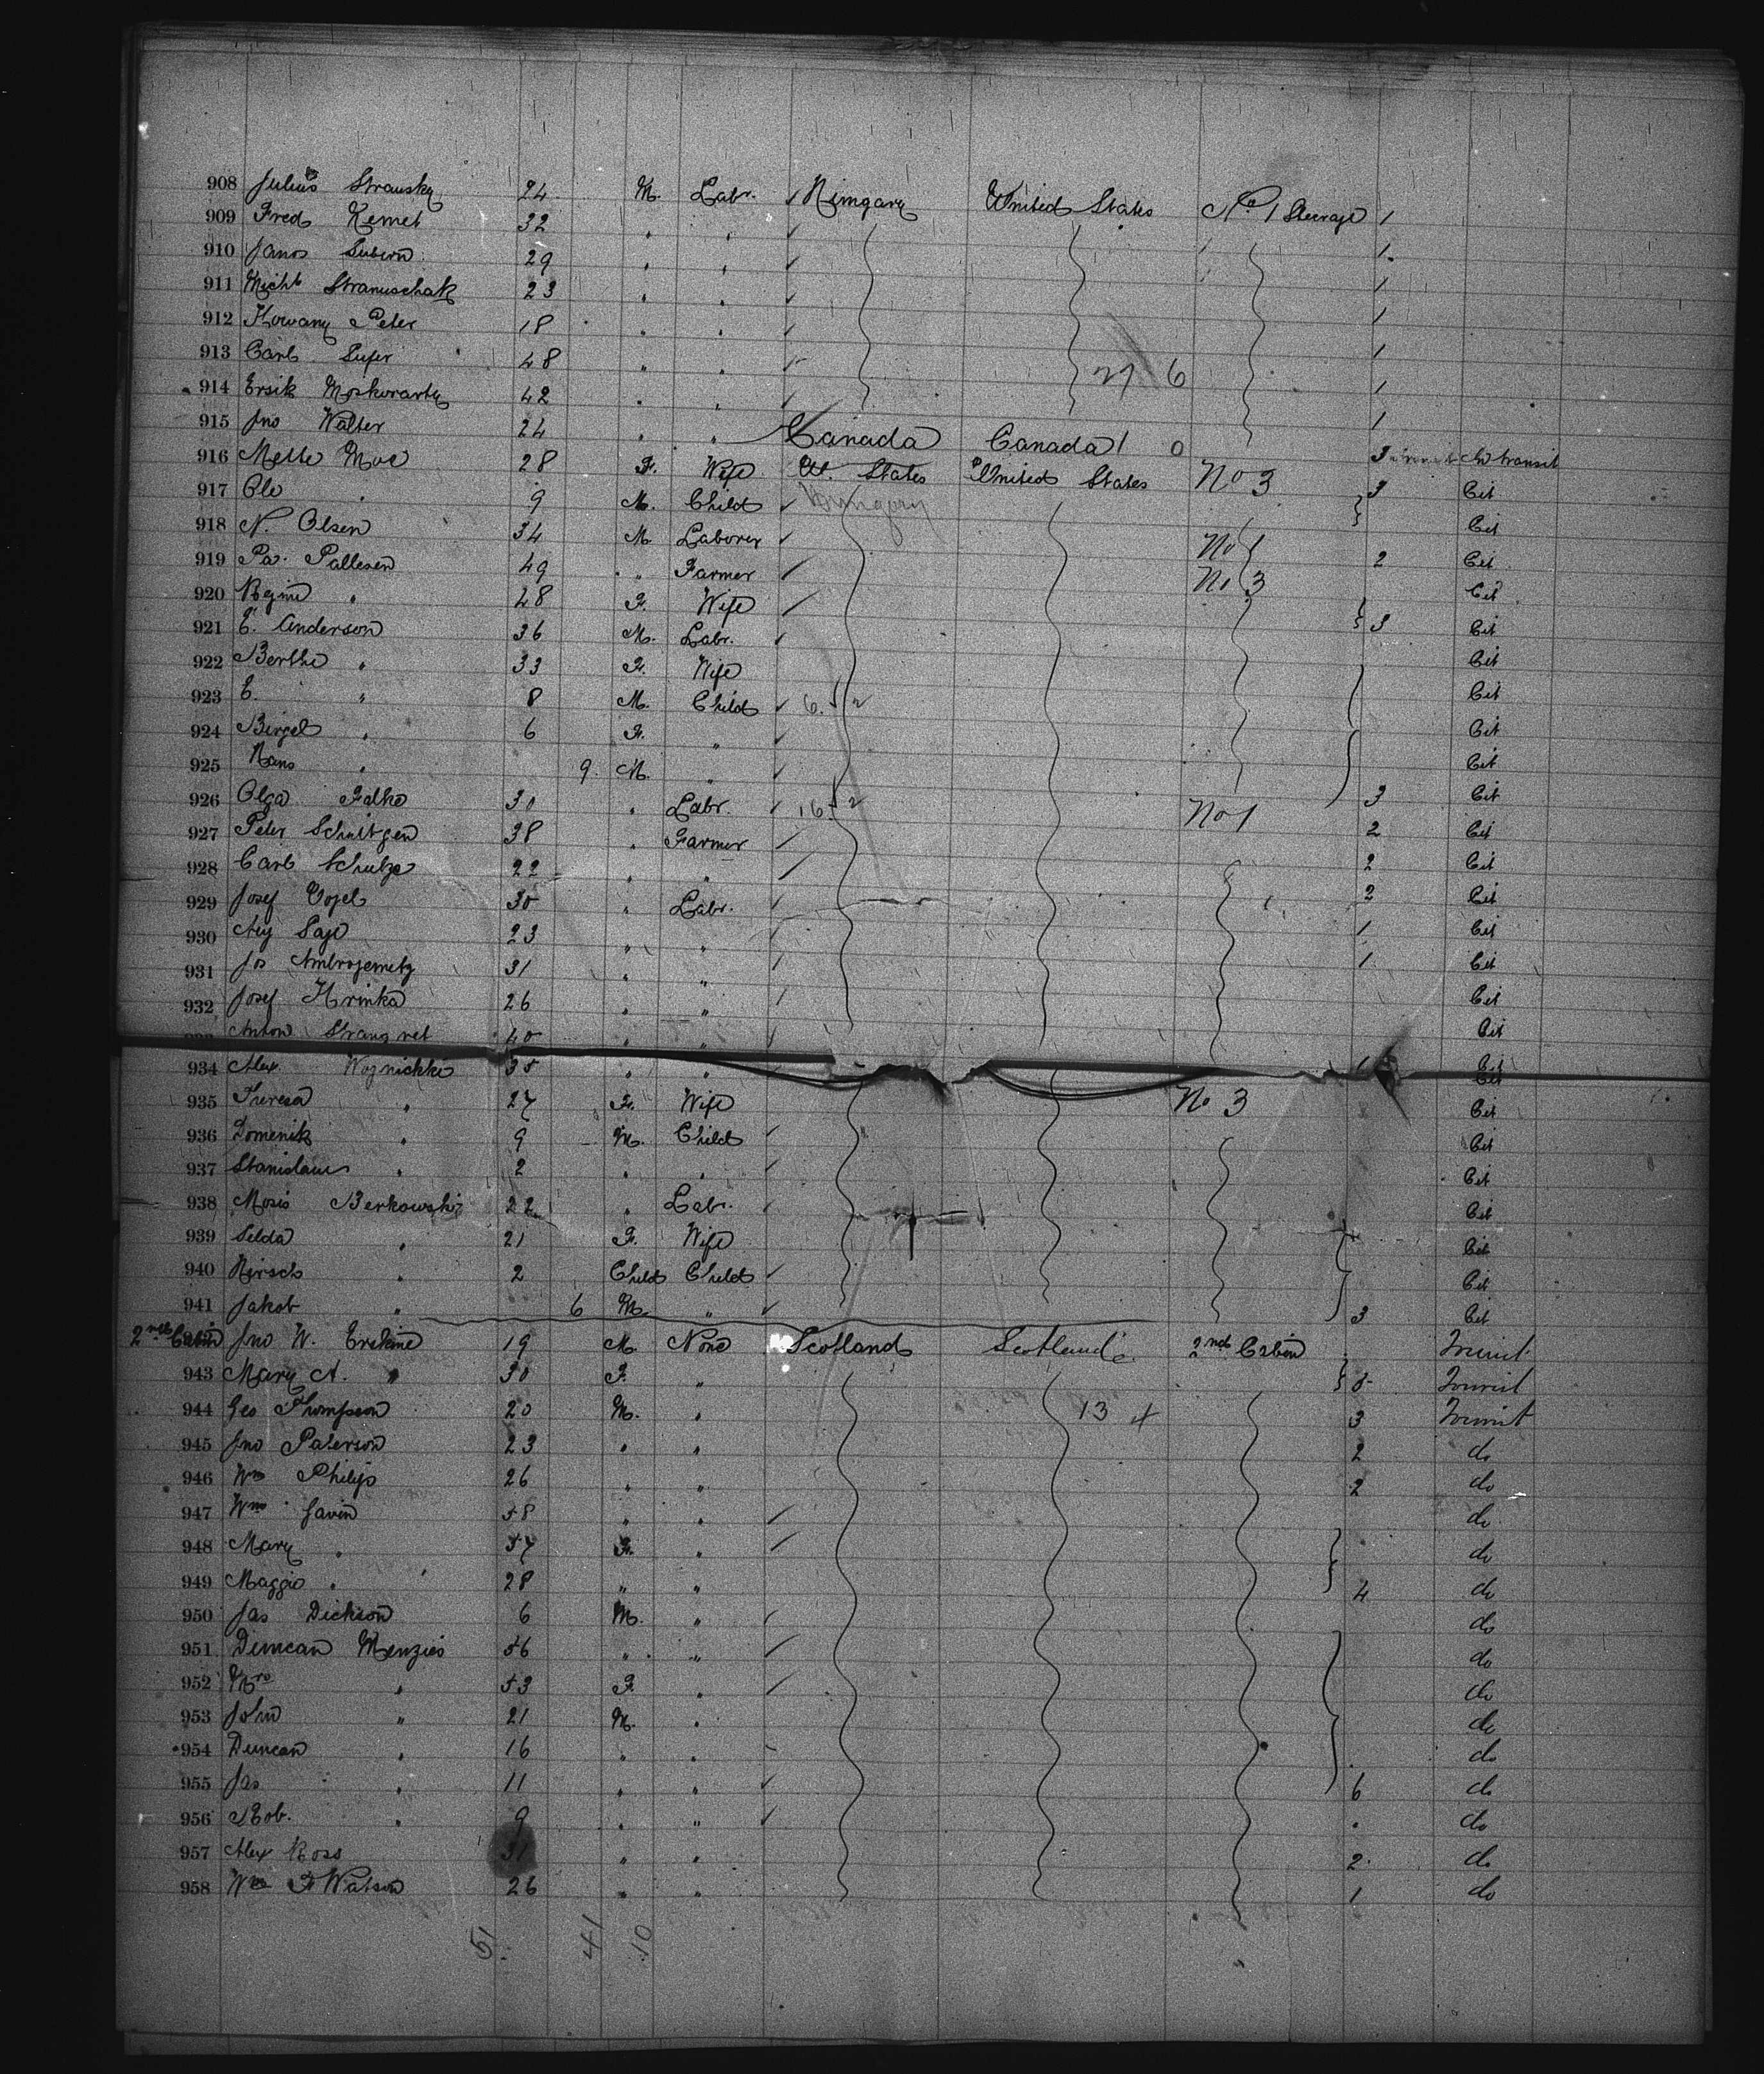 908 Julius Stransky 24 M. Labr. Hungary United States No 1 Steerage 1
909 Fred Kemet 32 " " 1
910 Janos 29 " " 1
911 Michl Stranuschak 23 " " 1
912 Peter 18 " " 1
913 Carl 48 " " 27 6 1
914 Ersik 42 " " 1
915 Jno Walter 24 " " Canada Canada 1 0 1
916 Mette Moe 28 F. Wife U. States United States No 3 In transit
917 Ole " 9 M. Child Hungary 3 Cit
918 N. Olsen 34 M. Laborer No 1 Cit
919 Pallesen 49 " Farmer No 3 2 Cit
920 Regine " 48 F. Wife Cit
921 E. Anderson 36 M. Labr. 3 Cit
922 Berthe " 33 F. Wife Cit
923 E. " 8 M. Child 6. Cit
924 Birgel " 6 F. " Cit
925 Hans " 9 M. " Cit
926 Olga Falke 30 " Labr. 16 No 1 3 Cit
927 Peter Schuitgen 38 " Farmer 2 Cit
928 Carl Schulze 22 " " 2 Cit
929 Josef Vogel 30 " Labr. 2 Cit
930 23 " " 1 Cit
931 Jos 31 " " 1 Cit
932 Josef Hrinka 26 " " Cit
Anton 40 " " Cit
934 Alex. Woznichki 35 " " 1 Cit
935 Teresa " 27 F. Wife No 3 Cit
936 Domenik " 9 M. Child Cit
937 Stanislaus " 2 " " Cit
938 Moses Berkowski 22 " Labr. Cit
939 Selda " 21 F. Wife Cit
940 Hirsch " 2 Child Child Cit
941 Jakob " 6 M. " 3 Cit
2nd Cabin Jno W. Erskine 19 M. None Scotland Scotland 2nd Cabin Tourist
943 Mary A. " 30 F. " 5 Tourist
944 Geo Thompson 20 M. " 13 4 3 Tourist
945 Jno Paterson 23 " " 2 do
946 Wm Philip 26 " " 2 do
947 Wm Gavin 58 " " do
948 Mary " 57 F. " do
949 Maggie " 28 " " 4 do
950 Jas Dickson 6 M. " do
951 Duncan Menzies 56 " " do
952 Mrs " 53 F. " do
953 John " 21 M. " do
954 Duncan " 16 " " do
955 Jas " 11 " " 6 do
956 Rob. " 9 " " do
957 Alex Ross 31 " " 2 do
958 Wm F Watson 26 " " 1 do
51 41 10